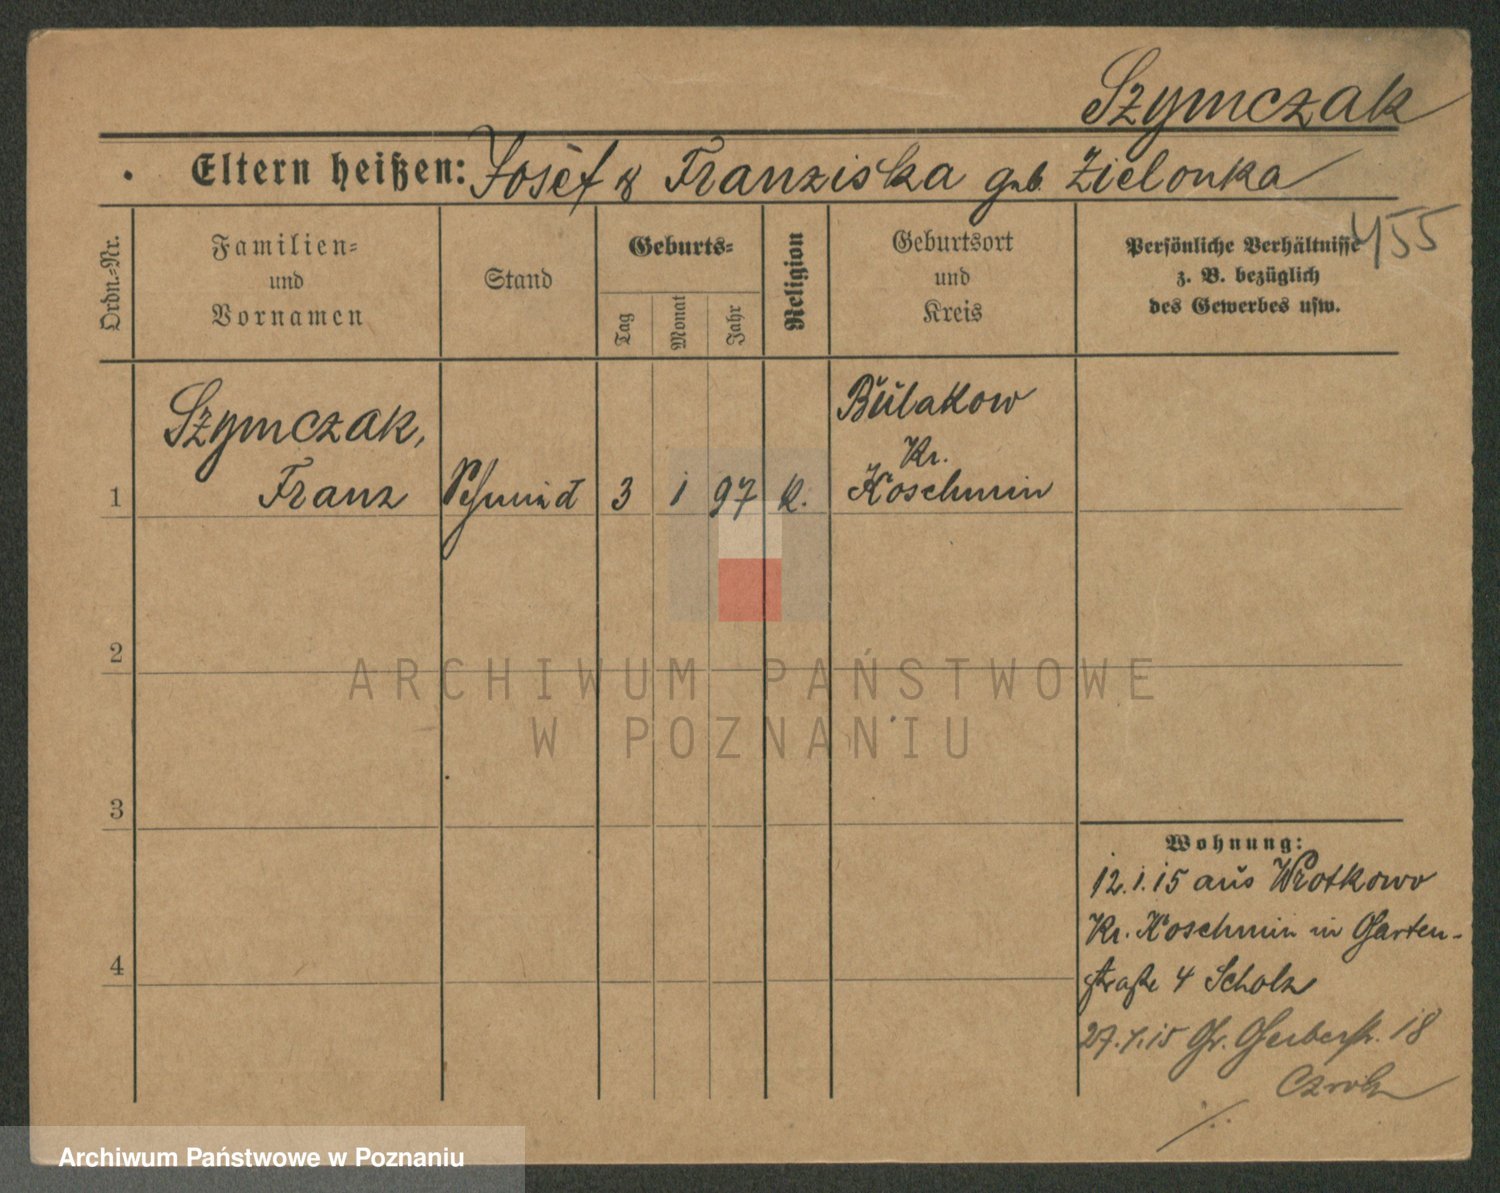 Szymczak
Eltern heißen: Josef & Franziska geb. Zielonka
455
Ordn.-Nr.
Familien-
und
Vornamen
Stand
Geburts-
Tag
Monat
Jahr
Religion
Geburtsort
und
Kreis
Persönliche Verhältnisse
z. B. bezüglich
des Gewerbes usw.
Szymczak,
Franz
1
Schmied
3
1
97
k.
Bŭlakow
Kr.
Koschmin
2
3
4
ARCHIWUM PAŃSTWOWE
W POZNANIU
Wohnung:
12.1.15 aus Wrotkowo
Kr. Koschmin in Garten-
straße 4 Scholz
27.1.15 Gr. Gerberstr. 18
Archiwum Państwowe w Poznaniu